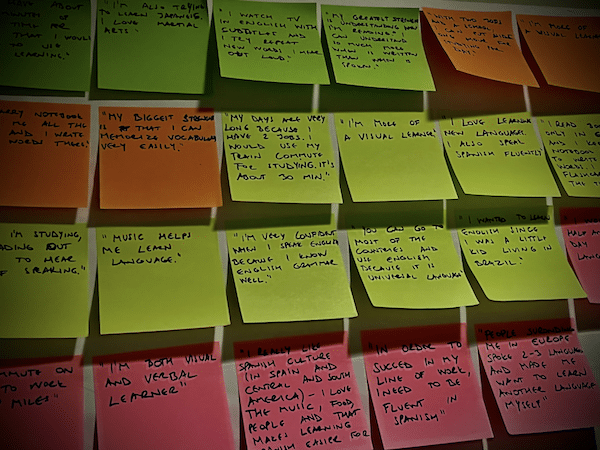 ABOUT
MONTH OF
TIME FOR
THAT I WOULD
TO USE
LEARNING"
"I'M ALSO TRYING
TO LEARN JAPANESE.
I LOVE MARTIAL
ARTS."
"I WATCH TV
IN ENGLISH WITH
SUBTITLES AND
TRY REPEAT
NEW WORDS I HEAR
OUT LOUD."
"MY GREATEST STRENGTH
IS UNDERSTANDING WHEN
I'M READING. I
CAN UNDERSTAND
SO MUCH MORE
WHEN IS WRITTEN
THAN WHEN IS
SPOKEN."
TWO JOBS
"I'M MORE OF
A VISUAL
NOTEBOOK
ME ALL THE
AND I WRITE
WORDS THERE."
"MY BIGGEST STRENGTH
IS THAT I CAN
MEMORIZE VOCABULARY
VERY EASILY."
"MY DAYS ARE VERY
LONG BECAUSE I
HAVE 2 JOBS. I
WOULD USE MY
TRAIN COMMUTE
FOR STUDYING. IT'S
ABOUT 30 MIN."
"I'M MORE OF
A VISUAL LEARNER"
"I LOVE LEARNING
NEW LANGUAGE.
I ALSO SPEAK
SPANISH FLUENTLY"
"I READ
ONLY IN
AND I KEEP
NOTEBOOK
TO WRITE
WORDS.
FLASHCARDS
THE
"I'M STUDYING,
READING OUT
TO HEAR
SPEAKING."
"MUSIC HELPS
ME LEARN
LANGUAGE."
"I'M VERY CONFIDENT
WHEN I SPEAK ENGLISH
BECAUSE I KNOW
ENGLISH GRAMMAR
WELL."
"YOU CAN GO TO
MOST OF THE
COUNTRIES AND
USE ENGLISH
BECAUSE IT IS
UNIVERSAL LANGUAGE"
"I WANTED TO LEARN
ENGLISH SINCE
I WAS A LITTLE
KID LIVING IN
BRAZIL."
HALF AN
DAY
COMMUTE ON
TO WORK
MILES"
"I'M BOTH VISUAL
AND VERBAL
LEARNER"
"I REALLY LIKE
SPANISH CULTURE
(IN SPAIN AND
CENTRAL AND SOUTH
AMERICA) - I LOVE
THE MUSIC, FOOD,
PEOPLE AND THAT
MAKES LEARNING
SPANISH EASIER FOR
"IN ORDER TO
SUCCED IN MY
LINE OF WORK,
I NEED TO BE
FLUENT IN
SPANISH"
"PEOPLE SURROUNDING
ME IN EUROPE
SPOKE 2-3 LANGUAGES
AND MADE ME
WANT TO LEARN
ANOTHER LANGUAGE
MYSELF"